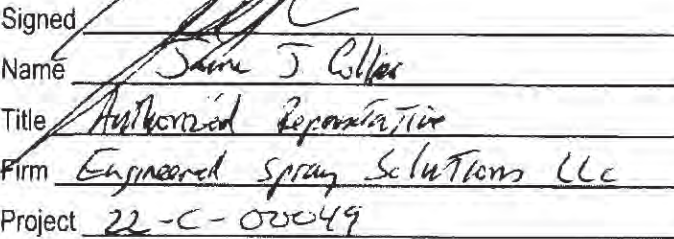 Signed
Name J Collier
Title Authorized Representative
Firm Engineered Spray Solutions LLC
Project 22-C-00049